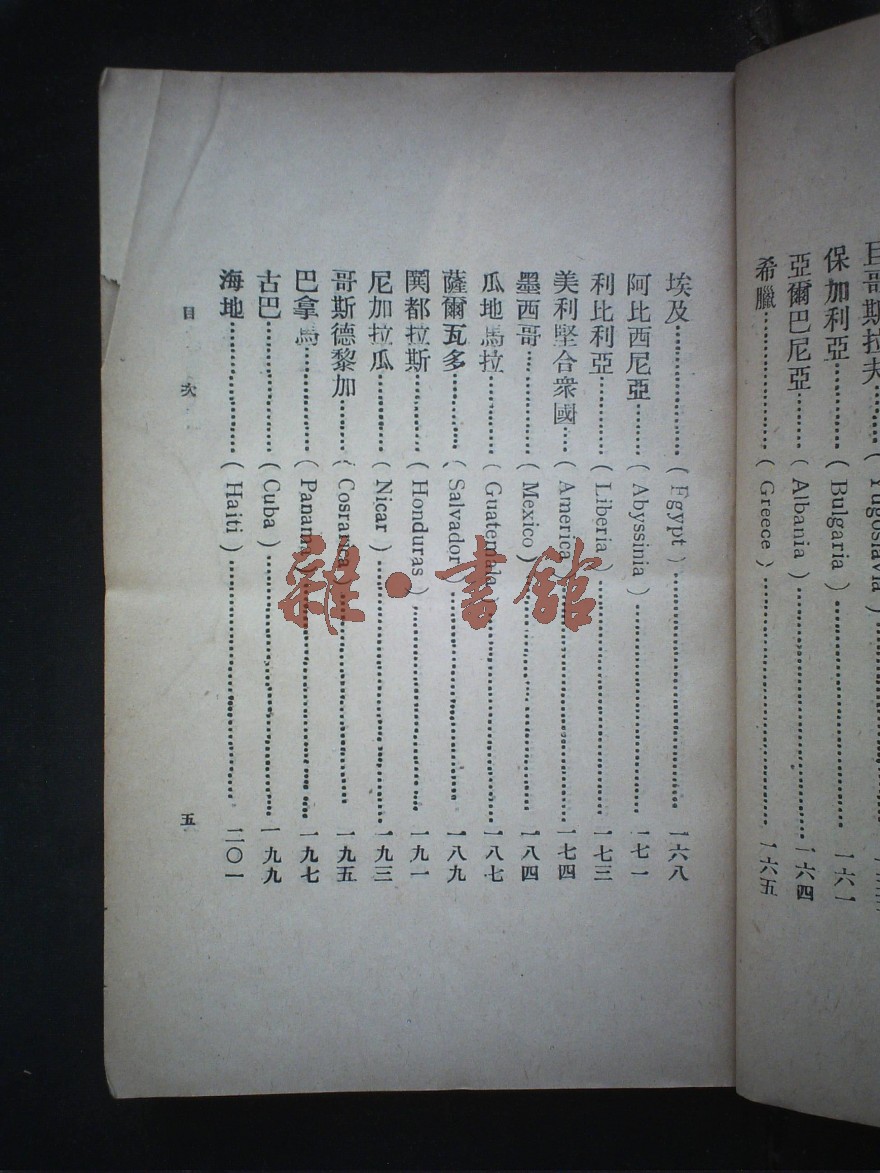 保加利亞………( Bulgaria )………一六一
亞爾巴尼亞………( Albania )………一六四
希臘………( Greece )………一六五
埃及………( Egypt )………一六八
阿比西尼亞………( Abyssinia )………一七一
利比利亞………( Liberia )………一七三
美利堅合衆國………( America )………一七四
墨西哥………( Mexico )………一八四
瓜地馬拉………( Guatemala )………一八七
薩爾瓦多………( Salvador )………一八九
閧都拉斯………( Honduras )………一九一
尼加拉瓜………( Nicar )………一九三
哥斯德黎加………( Cosrarica )………一九五
巴拿馬………( Panama )………一九七
古巴………( Cuba )………一九九
海地………( Haiti )………二〇一
目次 五
雜·書館